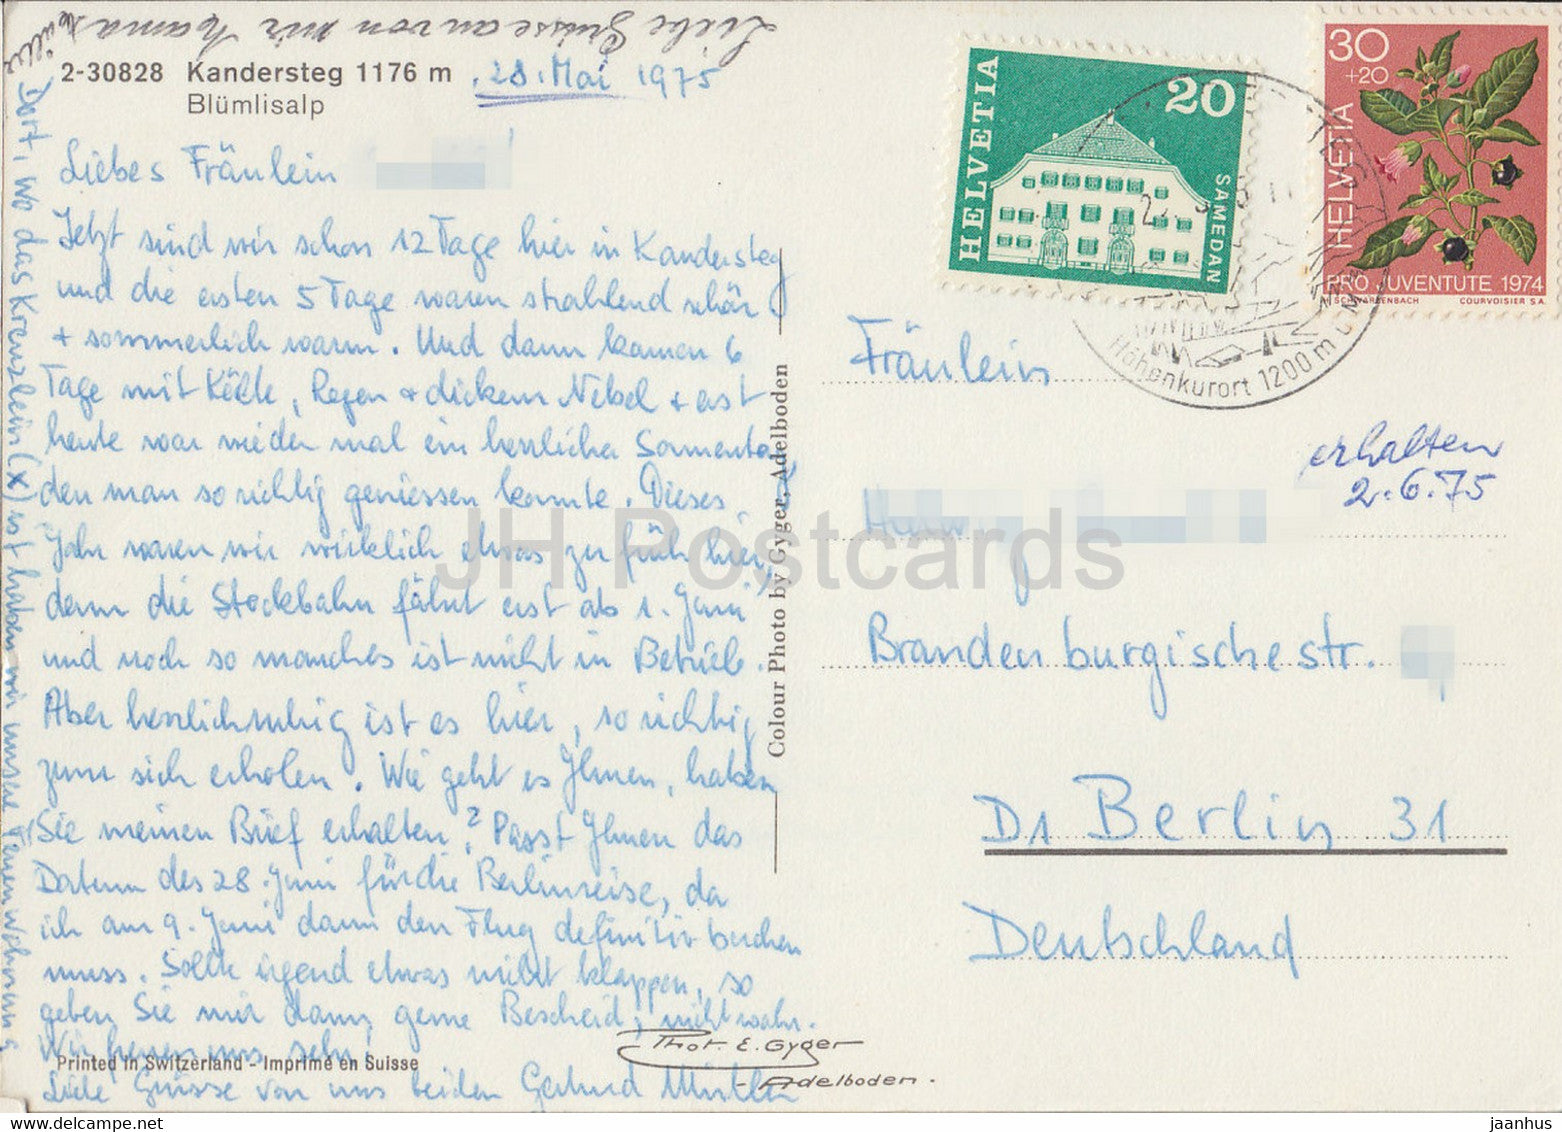 Liebe Grüsse an von mir
2-30828 Kandersteg 1176 m
Blümlisalp
28. Mai 1975
Liebes Fräulein
Jetzt sind wir schon 12 Tage hier in Kandersteg
und die ersten 5 Tage waren strahlend schön
+ sommerlich warm. Und dann kamen 6
Tage mit Kälte, Regen + dickem Nebel + erst
heute war wieder mal ein herrlicher Sonnentag
den man so richtig geniessen konnte. Dieses
Jahr waren wir wirklich etwas zu früh hier,
denn die Stockbahn fährt erst ab 1. Juni
und noch so manches ist nicht in Betrieb.
Aber herrlich ruhig ist es hier, so richtig
zum sich erholen. Wie geht es Ihnen, haben
Sie meinen Brief erhalten? Passt Ihnen das
Datum des 28. Juni für die Berlinreise, da
ich am 9. Juni dann den Flug definitiv buchen
muss. Sollte irgend etwas nicht klappen, so
geben Sie mir dann gerne Bescheid, nicht wahr.
Wir freuen uns sehr!
Liebe Grüsse von uns beiden Gertrud Müller
Dort, wo das Kreuzlein (x) ist haben wir unsere Ferienwohnung
Printed in Switzerland - Imprimé en Suisse
Phot. E. Gyger
- Adelboden.
Colour Photo by Gyger, Adelboden
HELVETIA
20
SAMEDAN
30
+20
HELVETIA
PRO JUVENTUTE 1974
SCHWARZENBACH COURVOISIER S.A.
Höhenkurort 1200 m ü.M.
Fräulein
erhalten
2.6.75
Brandenburgischestr.
D1 Berlin 31
Deutschland
JH Postcards
jaanhus